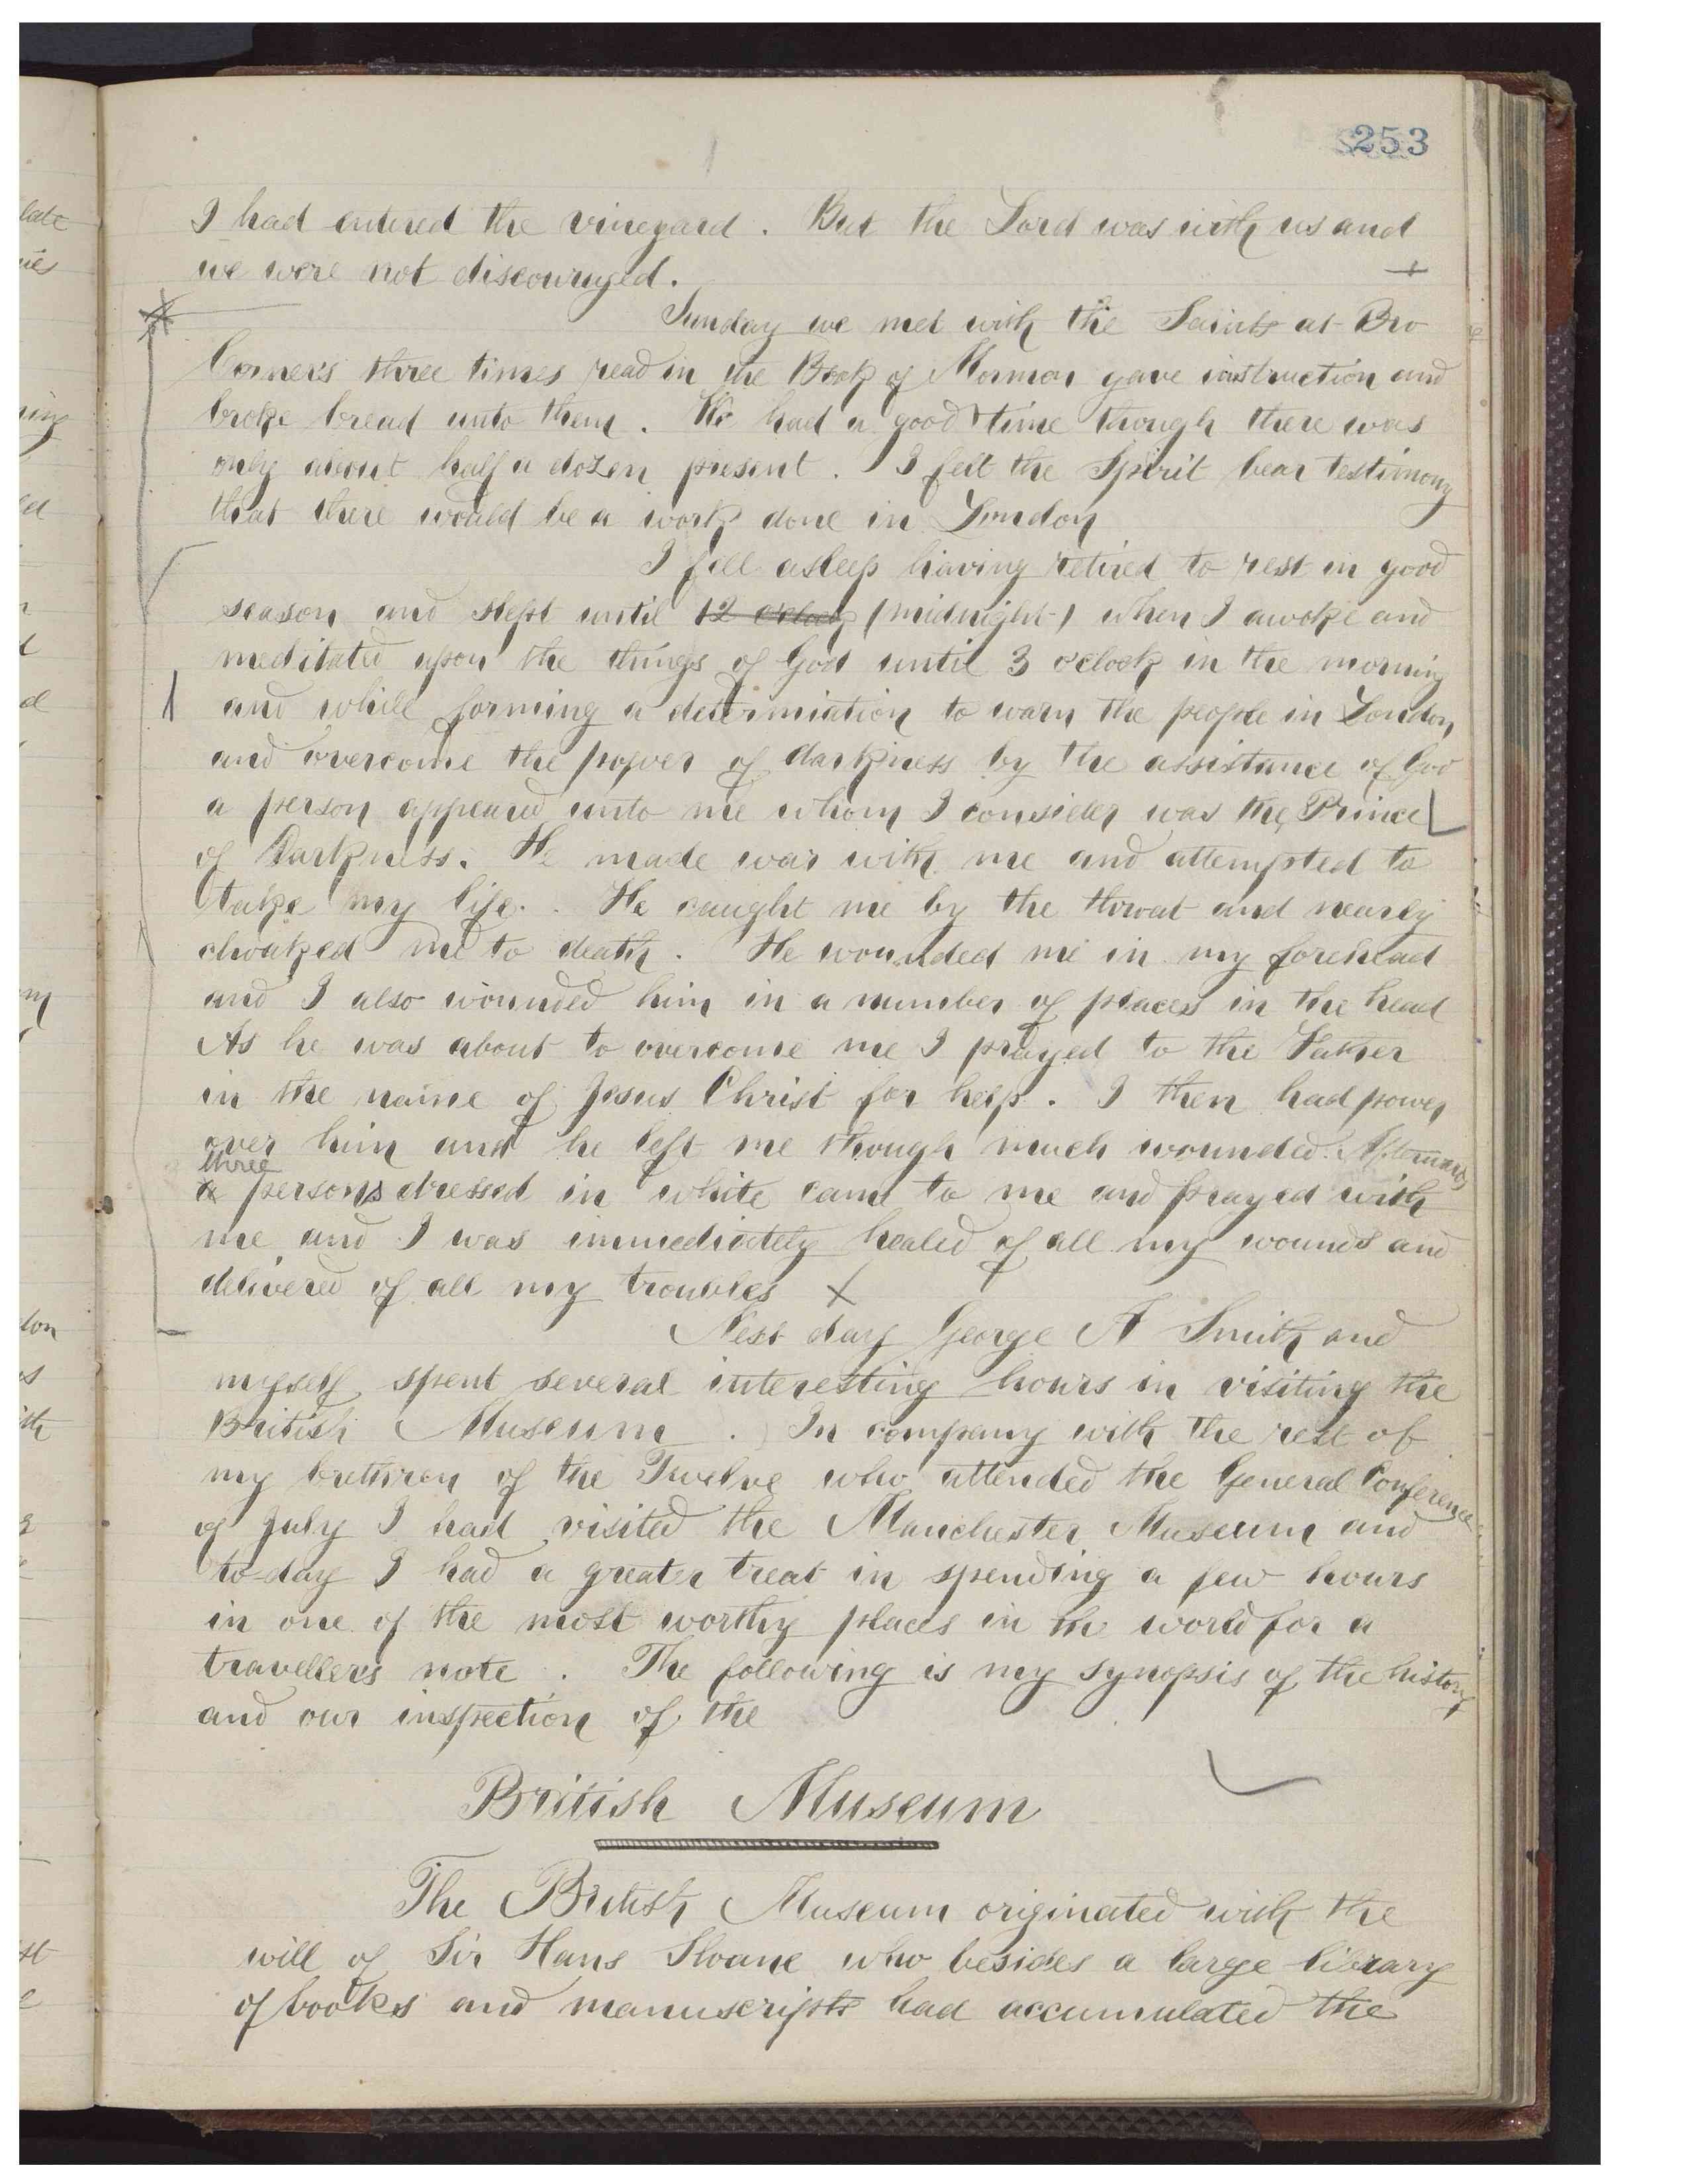 253
I had entered the vineyard. But the Lord was with us and
we were not discouraged.
Sunday we met with the Saints at Bro
Corners three times read in the Book of Mormon gave instruction and
broke bread unto them. We had a good time though there was
only about half a dozen present. I felt the Spirit bear testimony
that there would be a work done in London
I fell asleep having retired to rest in good
season and slept until 12 o'clock (midnight) when I awoke and
meditated upon the things of God until 3 o'clock in the morning
and while forming a determiation to warn the people in London
and overcome the power of darkness by the assistance of God
a person appeared unto me whom I consider was the Prince
of Darkness. He made war with me and attempted to
take my life. He caught me by the throat and nearly
choaked me to death. He wounded me in my forehead
and I also wounded him in a number of places in the head
As he was about to overcome me I prayed to the Father
in the name of Jesus Christ for help. I then had power
over him and he left me though much wounded. Afterwards
three
a persons dressed in white came to me and prayed with
me and I was immediately healed of all my wounds and
delivered of all my troubles X
Next day George A Smith and
myself spent several interesting hours in visiting the
British Museum. In company with the rest of
my brethren of the Twelve who attended the General Conference
of July I had visited the Manchester Museum and
to-day I had a greater treat in spending a few hours
in one of the most worthy places in the world for a
travellers note. The following is my synopsis of the history
and our inspection of the
British Museum
The British Museum originated with the
will of Sir Hans Sloane who besides a large library
of books and manuscripts had accumulated the